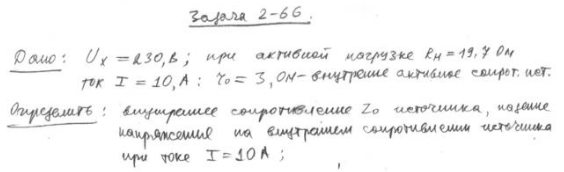 Задача 2-66.
Дано: Uх = 230, В; при активной нагрузке Rн = 19.7 Ом
ток I = 10, А: r₀ = 3, Ом - внутренне активное сопрот. ист.
Определить: внутреннее сопротивление Z₀ источника, падение
напряжения на внутреннем сопротивлении источника
при токе I = 10 А;